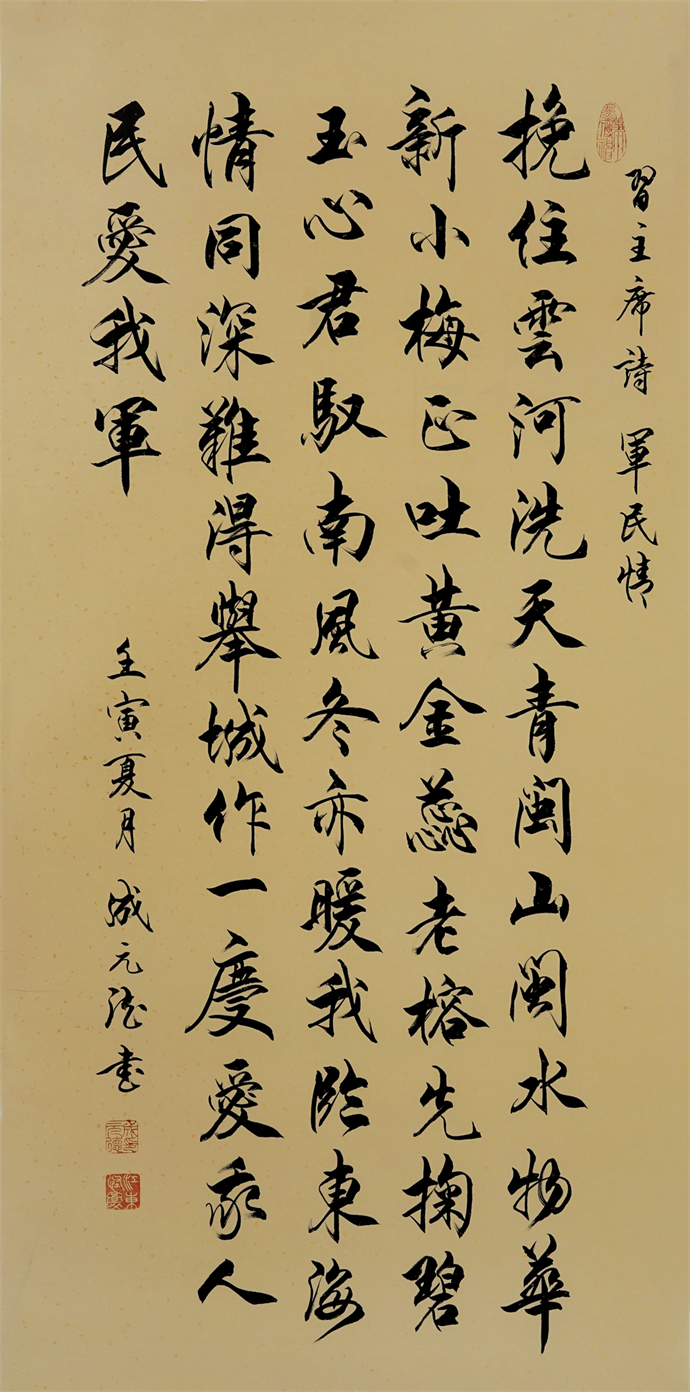 習主席詩 軍民情
挽住雲河洗天青閩山閩水物華
新小梅正吐黃金蕊老榕先掬碧
玉心君馭南風冬亦暖我臨東海
情同深難得舉城作一慶愛我人
民愛我軍
壬寅夏月 成元德書